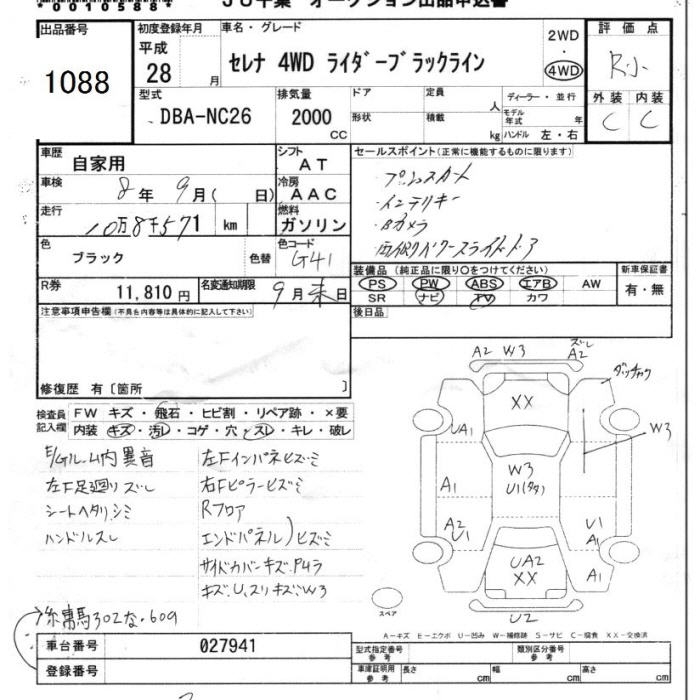 出品番号
1088
初度登録年月
平成
28
月
車名・グレード
セレナ 4WD ライダーブラックライン
2WD
・
4WD
評価点
R小
外装 内装
C C
型式
DBA-NC26
排気量
2000
CC
ドア
形状
定員
人
積載
kg
ディーラー・並行
モデル年式
年
ハンドル 左・右
車歴
自家用
シフト
AT
車検
8年9月( 日)
冷房
AAC
走行
10万8千571 km
燃料
ガソリン
色
ブラック
色替
色コード
G41
R券
11,810円
名変通知期限
9月末日
セールスポイント(正常に機能するものに限ります)
・プッシュスタート
・インテリキー
・Bカメラ
・両側パワースライドドア
装備品(純正品に限り○をつけてください)
PS PW ABS エアB AW
SR ナビ TV カワ
新車保証書
有・無
後日品
注意事項申告欄(不具合内容等は具体的に記入して下さい)
修復歴 有〔箇所 〕
検査員
記入欄
FW キズ・飛石・ヒビ割・リペア跡・×要
内装 キズ・汚レ・コゲ・穴・スレ・キレ・破レ
E/Gルーム内異音
左F足廻りズレ
シートヘタリシミ
ハンドルスレ
左Fインパネヒズミ
右Fピラーヒズミ
Rフロア
エンドパネル)ヒズミ
サイドカバーキズ
キズ、U、スリキズ、W3
302な・609
A2 W3 ズレ A2
XX
UA1
W3
W3
U1
A1
A2
U1
U1
A1
UA2
XX
A1
U2
スペア
A-キズ E-エクボ U-凹み W-補修跡 S-サビ C-腐食 XX-交換済
車台番号
027941
登録番号
型式指定番号
参考
類別区分番号
参考
車庫証明用
参考
長さ cm 幅 cm 高さ cm